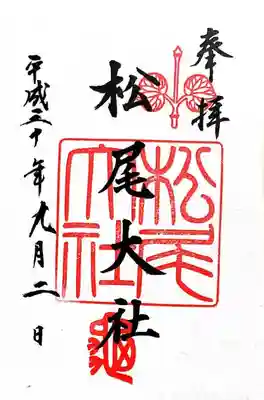 奉拝
松尾大社
平成三十年九月二日
松尾大社
亀